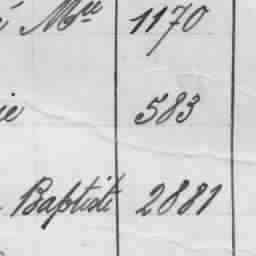 é Mie 1170
ie 583
Baptiste 2881